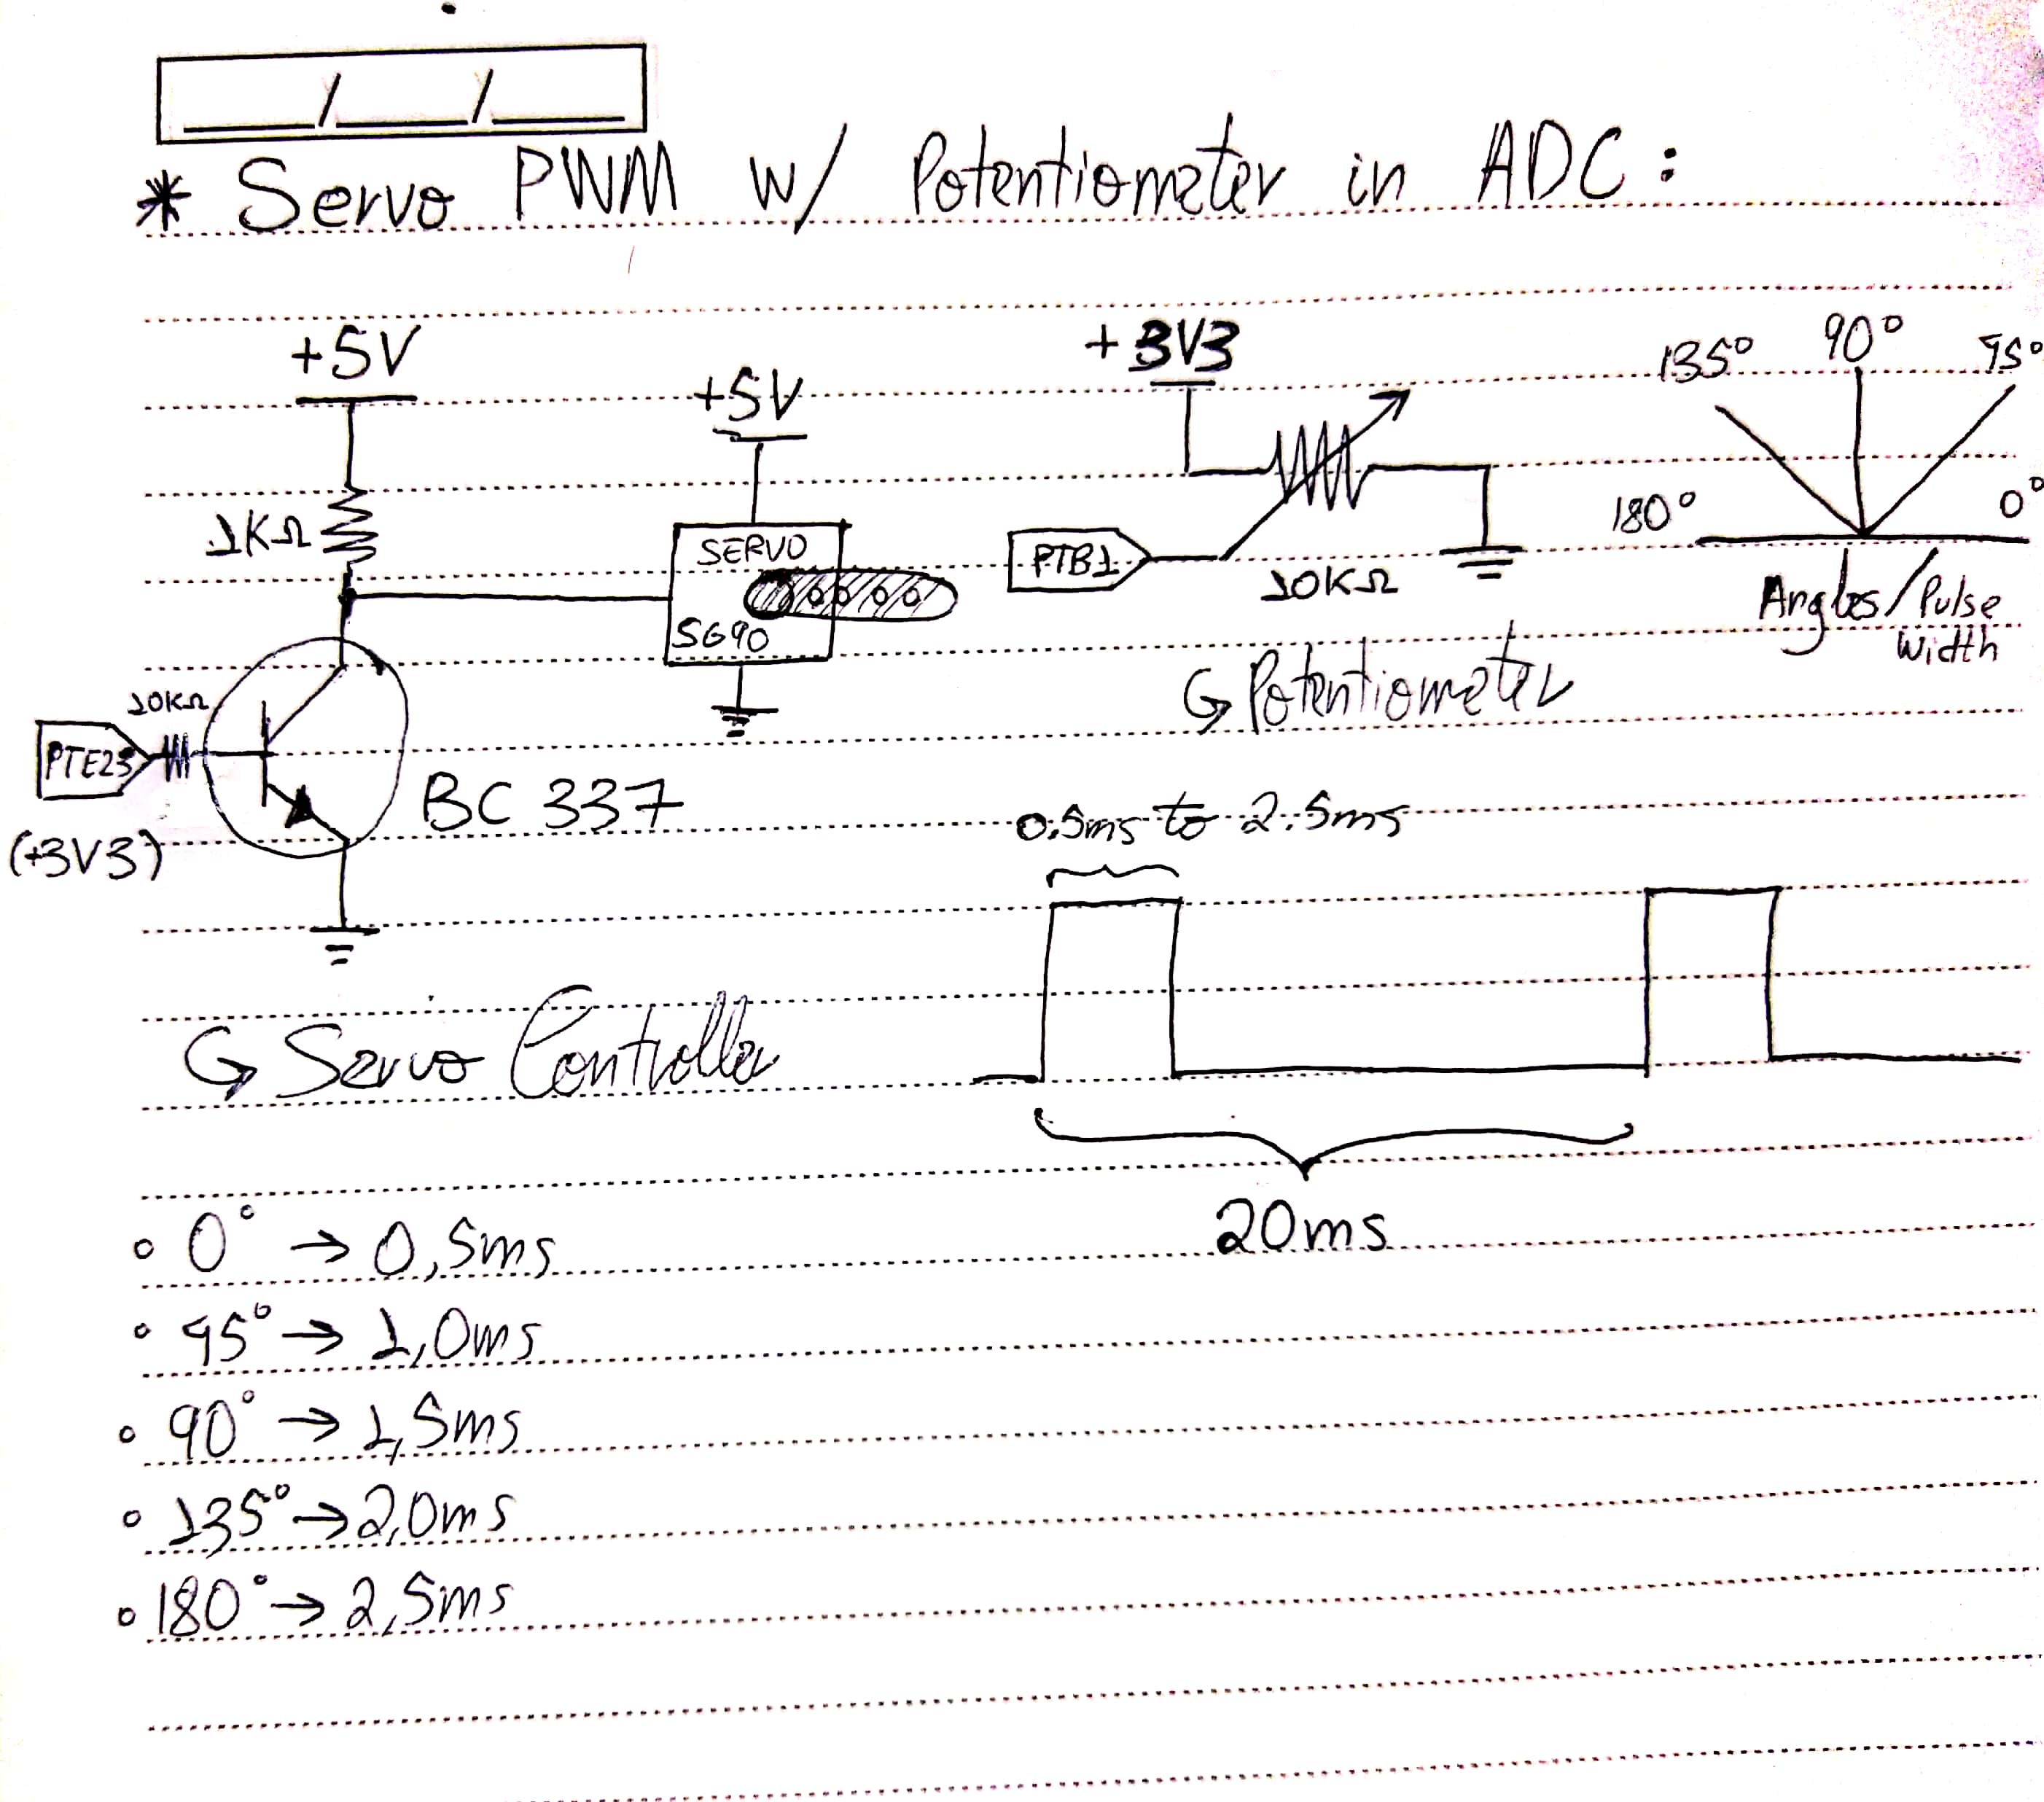 ___/___/___
* Servo PWM w/ Potentiometer in ADC:
+5V
1KΩ
+5V
SERVO
SG90
10KΩ
PTE23
(+3V3)
BC 337
↳ Servo Controller
+3V3
PTB1
10KΩ
↳ Potentiometer
135° 90° 45°
180° 0°
Angles/Pulse
Width
0.5ms to 2.5ms
20ms
° 0° → 0,5ms
° 45° → 1,0ms
° 90° → 1,5ms
° 135° → 2,0ms
° 180° → 2,5ms